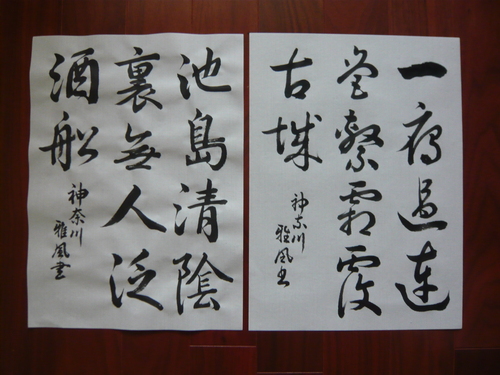 一雁過連
營繁霜覆
古城
神奈川
雅風書
池島清陰
裏無人泛
酒船
神奈川
雅風書